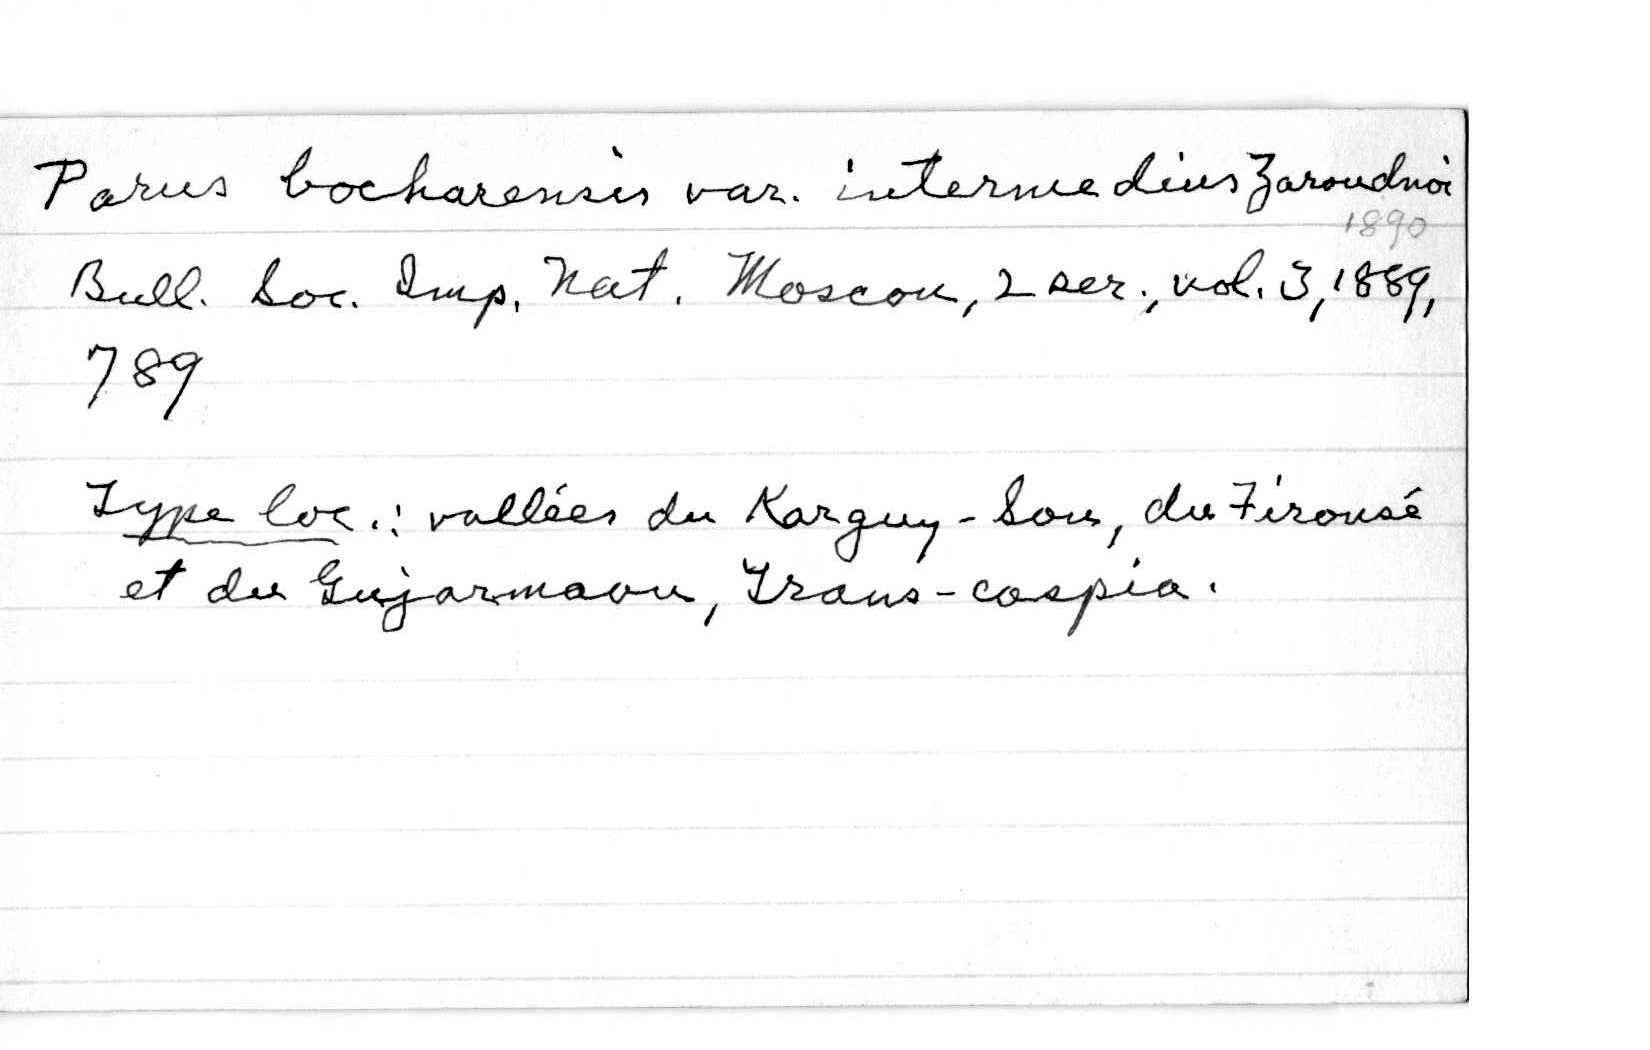 Parus bocharensis var. intermedius Zaroudnoi
1890
Bull. Soc. Imp. Nat. Moscou, 2 ser., vol. 3, 1889,
789
Type loc.: vallées du Karguy-Sou, du Firousé
et du Gujarmaou, Trans-caspia.